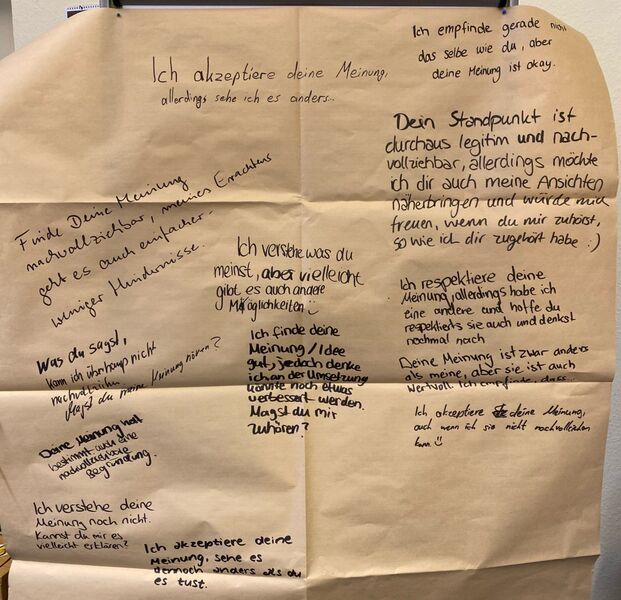 Ich empfinde gerade nicht
das selbe wie du, aber
deine Meinung ist okay.
Ich akzeptiere deine Meinung,
allerdings sehe ich es anders...
Dein Standpunkt ist
durchaus legitim und nach-
vollziehbar, allerdings möchte
ich dir auch meine Ansichten
näherbringen und würde mich
freuen, wenn du mir zuhörst,
so wie ich dir zugehört habe :)
Finde Deine Meinung
nachvollziehbar, meines Erachtens
geht es auch einfacher-
weniger Hindernisse.
Ich verstehe was du
meinst, aber vielleicht
gibt es auch andere
Möglichkeiten
Ich respektiere deine
Meinung, allerdings habe ich
eine andere und hoffe du
respektierst sie auch und denkst
nochmal nach
Was du sagst,
kann ich überhaupt nicht
nachvollziehen
Magst du meine Meinung hören?
Ich finde deine
Meinung / Idee
gut, jedoch denke
ich an der Umsetzung
könnte noch etwas
verbessert werden.
Magst du mir
zuhören?
Deine Meinung ist zwar anders
als meine, aber sie ist auch
wertvoll. Ich empfinde, dass...
Ich akzeptiere deine Meinung,
auch wenn ich sie nicht nachvollziehen
kann.
Deine Meinung hat
bestimmt auch eine
nachvollziehbare
Begründung.
Ich verstehe deine
Meinung noch nicht.
Kannst du mir es
vielleicht erklären?
Ich akzeptiere deine
Meinung, sehe es
dennoch anders als du
es tust.